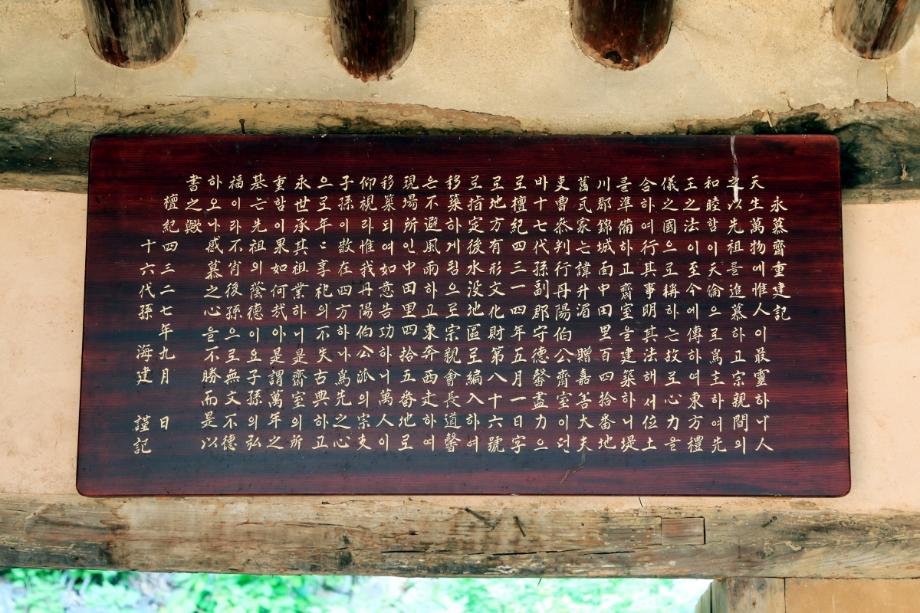 永慕齋重建記
天生萬物에惟人이最靈하니人
之以先祖를追慕하고宗親間의
和睦함이天倫으로爲主하여先
王之法이至今에傳하여東方禮
儀之國으로稱하는故로心力을
合하여行其事明其法해서位土
를準備하고正齋室을建築하니堤
川郡錦城面中田里百四拾番地
舊瓦家는諱升湄 贈嘉善大夫
吏曹叅判行丹陽伯公齊室이던
바十七代孫副郡守德馨盡力으
로檀紀四三一四年五月一日字
로地方有形文化財第八十六號
로指定後水没地區로編入하여
移築하게됨으로宗親會長道馨
은不避風雨하고東奔西走하여
現場所인中田里四拾五番地로
移築되여如意告功하니萬人이
仰視리라惟我丹陽伯公派의宗夫
子孫이散在四方하나爲先之心
으로年〻享祀의不失古典하고
永世承其祖業하니是齋室의所
重함이果如何哉아是謂萬年之
基는先祖의蔭德이요子孫의弘
福이라不肖後孫으로無文不德
하오나感慕之心을不勝而是以
書之歟
檀紀四三二七年九月 日
十六代孫 海建 謹記